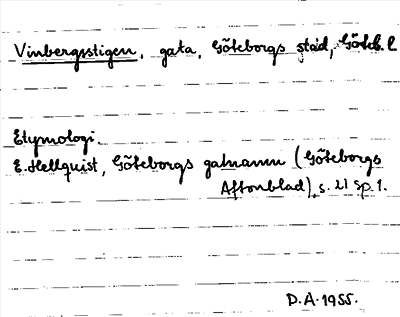 Vinbergsstigen, gata, Göteborgs stad, Göteb. l
Etymologi.
E. Hellquist, Göteborgs gatnamn (Göteborgs
Aftonblad), s. 21 sp. 1.
D.A. 1955.